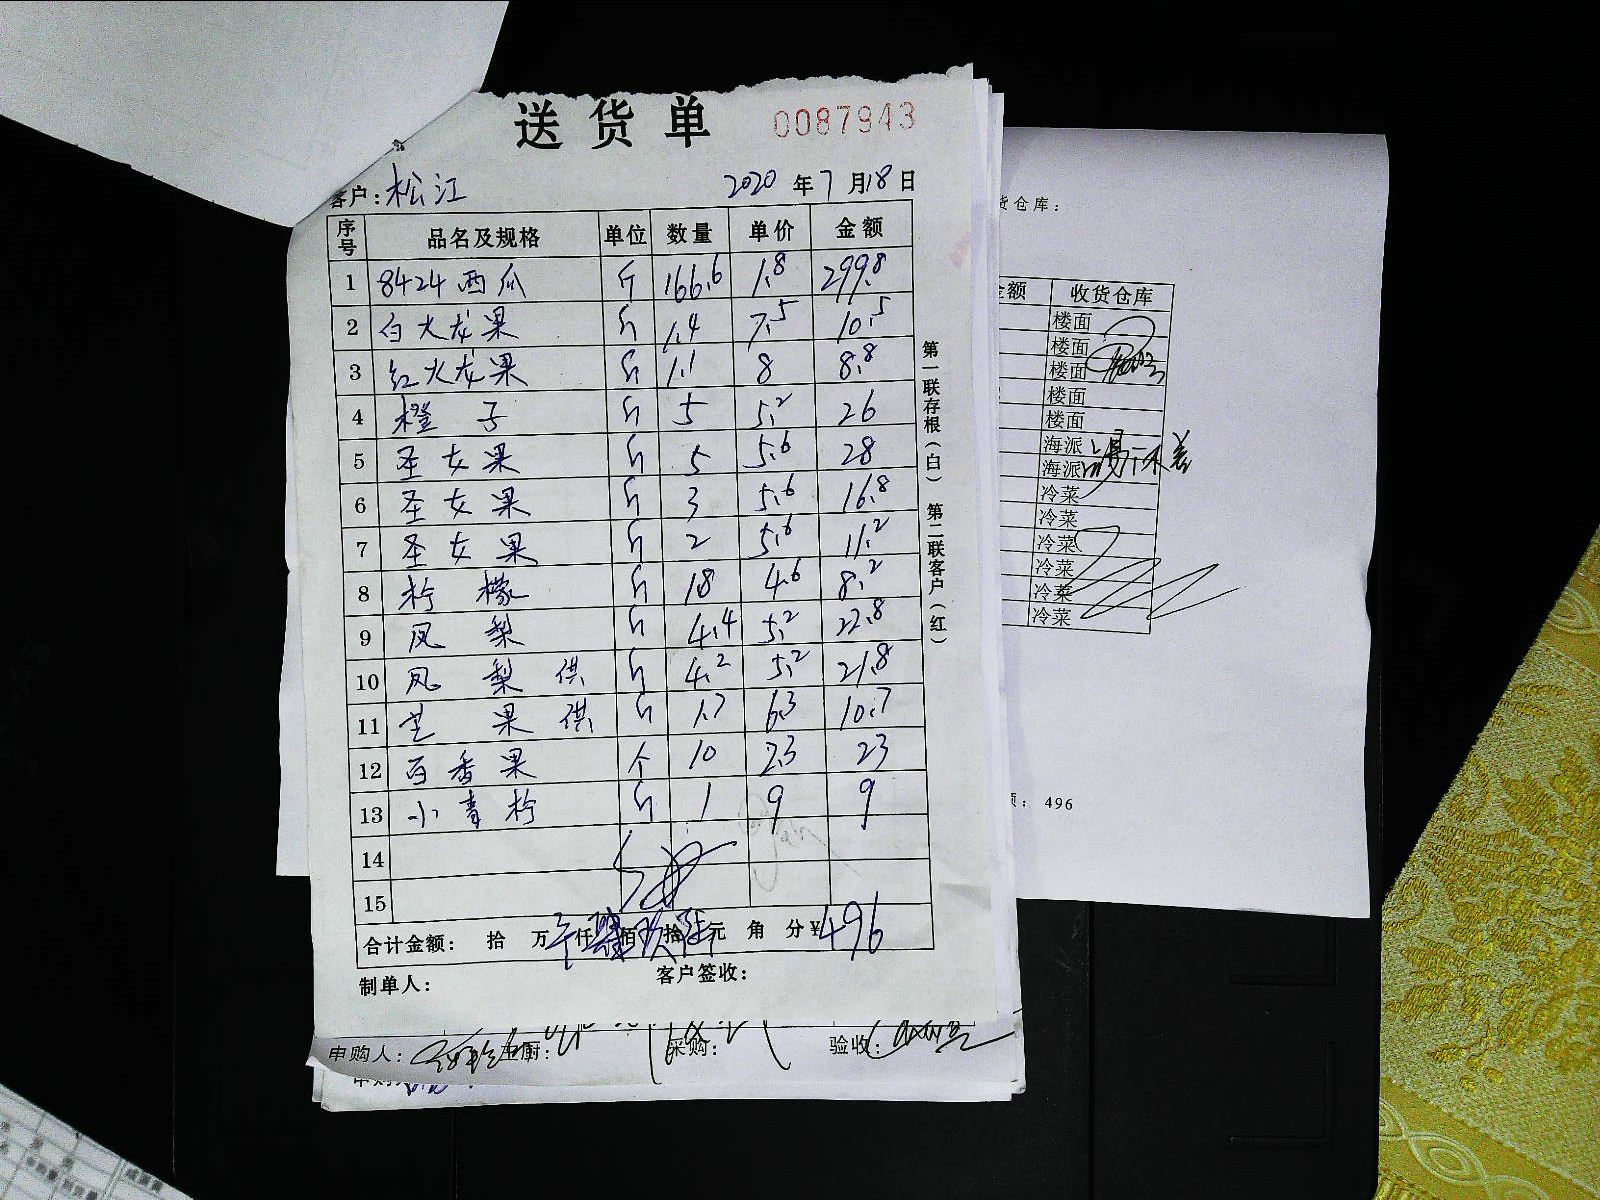 送货单 0087943
客户：松江 2020年7月18日
序号 品名及规格 单位 数量 单价 金额
1 8424西瓜 斤 166.6 1.8 299.8
2 白火龙果 斤 1.4 7.5 10.5
3 红火龙果 斤 1.1 8 8.8
4 橙子 斤 5 5.2 26
5 圣女果 斤 5 5.6 28
6 圣女果 斤 3 5.6 16.8
7 圣女果 斤 2 5.6 11.2
8 柠檬 斤 18 4.6 8.2
9 凤梨 斤 4.4 5.2 22.8
10 凤梨供 斤 4.2 5.2 21.8
11 芒果供 斤 1.7 6.3 10.7
12 百香果 个 10 2.3 23
13 小青柠 斤 1 9 9
14
15
合计金额： 拾 万 仟 佰 拾 元 角 分 ¥496
制单人： 客户签收：
第一联存根（白） 第二联客户（红）
货仓库：
金额 收货仓库
楼面
楼面
楼面
楼面
楼面
海派
海派
冷菜
冷菜
冷菜
冷菜
冷菜
冷菜
：496
申购人： 主厨： 采购： 验收：